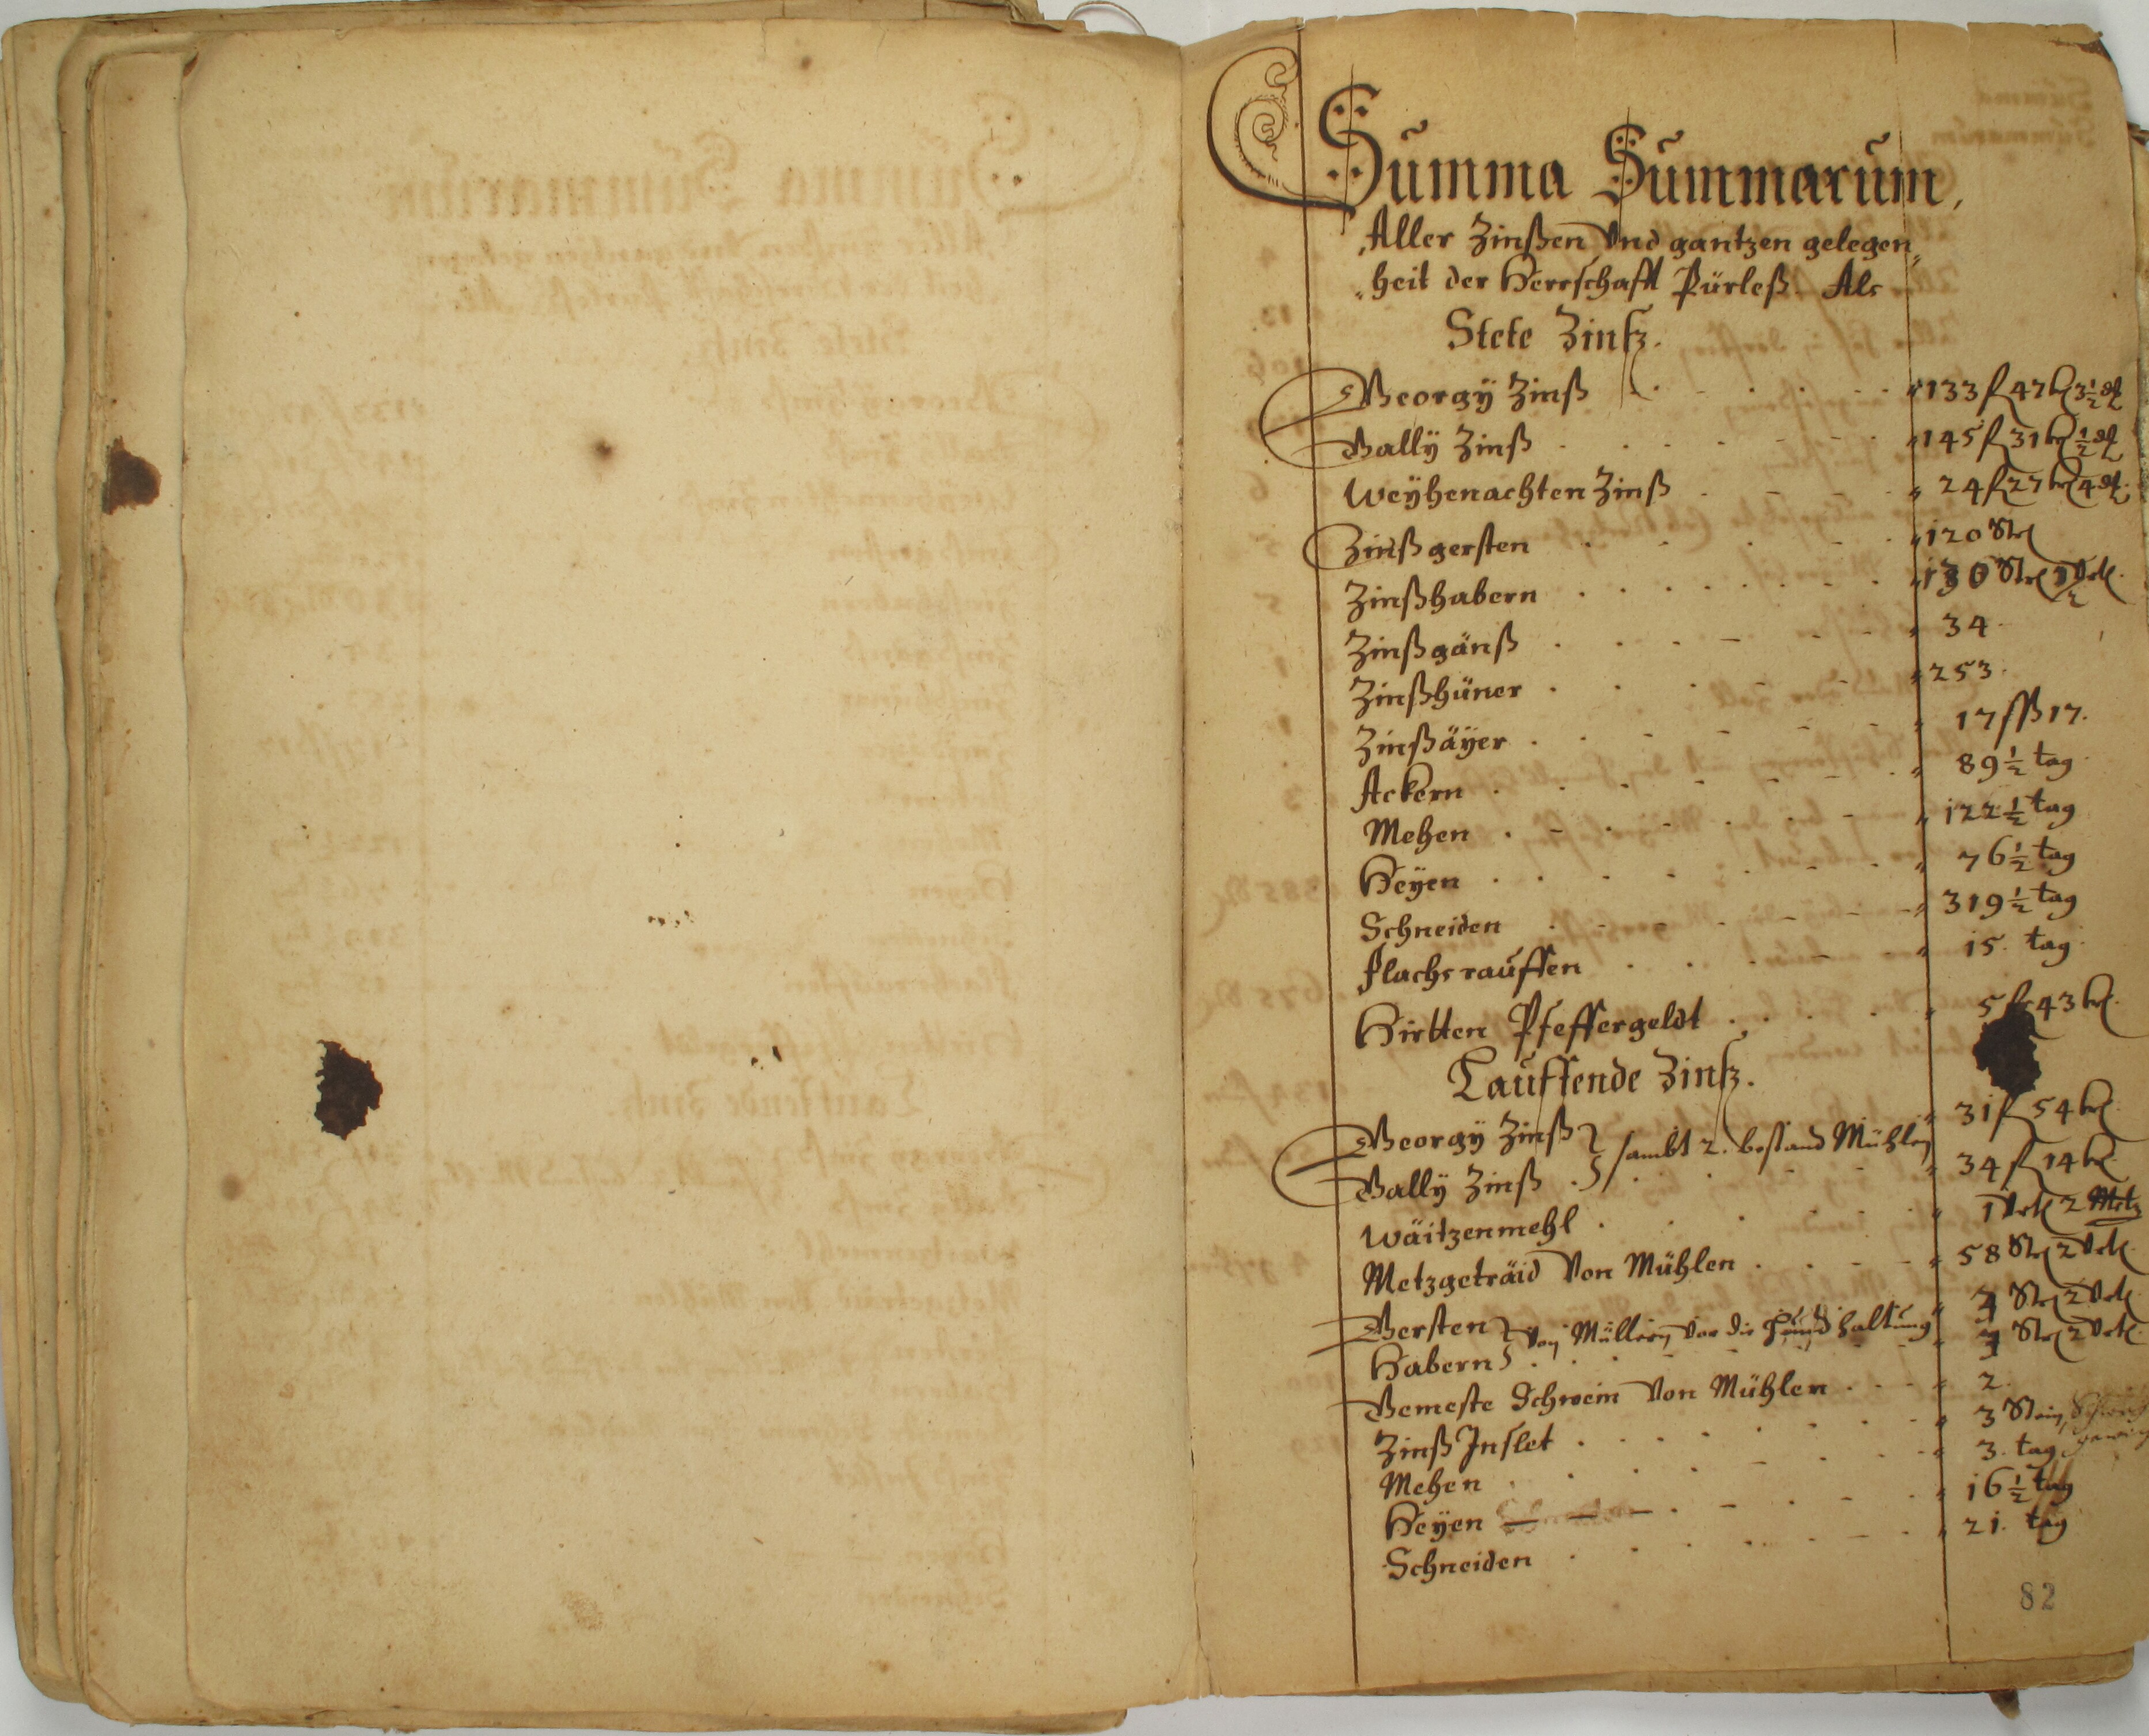 Summa Summarum,
Aller Zinßen Vnd gantzen gelegen„
„heit der Herrschafft Pürleß. Als
Stete Zinß.
Georgÿ Zinß . . . . . "133 fl 47 kr 3½ ₰
Gallÿ Zinß . . . . . "145 fl 31 kr ½ ₰
Weÿhenachten Zinß . . . " 24 fl 27 kr 4 ₰.
Zinßgersten . . . . . "120 Str
Zinßhabern . . . . . Str Vrtl.
Zinßgänß . . . . . " 34.
Zinßhüner . . . . . "253.
Zinßäÿer . . . . . " 17 ßß 17.
Ackern . . . . . " 89½ tag.
Mehen . . . . . " 122½ tag
Heÿen . . . . . " 76½ tag
Schneiden . . . . . " 319½ tag
Flachsrauffen . . . . . " 15. tag.
Hirtten Pfeffergeldt . . . . " 5 fl 43 kr.
Lauffende Zinß.
Georgÿ Zinß sambt 2. bestand Mühlen " 31 fl 54 kr.
Gallÿ Zinß . . . . . " 34 fl 14 kr.
Wäitzenmehl . . . . . " 1 Vrtl 2 Metz
Metzgeträid Von Mühlen . . . . " 58 Str 2 Vrtl.
Gersten Von Müllern Vor die Hundhaltung " Str 2 Vrtl.
Habern . . . . . " Str 2 Vrtl.
Gemeste Schwein Von Mühlen . . . " 2.
Zinß Inslet . . . . . " 3 Stein
Mehen . . . . . " 3. tag
Heÿen . . . . . " 16½ tag
Schneiden . . . . . " 21. tag
82